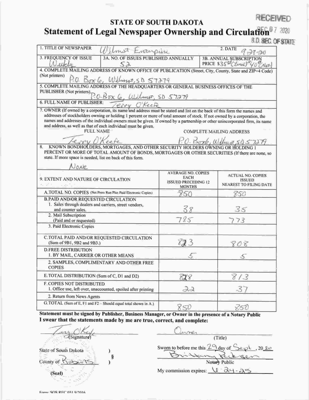 STATE OF SOUTH DAKOTA
RECEIVED
Statement of Legal Newspaper Ownership and Circulation
S.D. SEC. OF STATE
1. TITLE OF NEWSPAPER
Wilmot Enterprise
2. DATE
9-29-20
3. FREQUENCY OF ISSUE
Weekly
3A. NO. OF ISSUES PUBLISHED ANNUALLY
52
3B. ANNUAL SUBSCRIPTION PRICE
4. COMPLETE MAILING ADDRESS OF KNOWN OFFICE OF PUBLICATION (Street, City, County, State and ZIP+4 Code) (Not printers)
P.O. Box 6, Wilmot, SD 57279
5. COMPLETE MAILING ADDRESS OF THE HEADQUARTERS OR GENERAL BUSINESS OFFICES OF THE PUBLISHER (Not printers)
P.O. Box 6, Wilmot, SD 57279
6. FULL NAME OF PUBLISHER:
Terry O'Keefe
7. OWNER (If owned by a corporation, its name and address must be stated and list on the back of this form the names and addresses of stockholders owning or holding 1 percent or more of total amount of stock. If not owned by a corporation, the names and addresses of the individual owners must be given. If owned by a partnership or other unincorporated firm, its name and address, as well as that of each individual must be given.
FULL NAME
COMPLETE MAILING ADDRESS
Terry O'Keefe
P.O. Box 6, Wilmot, SD 57279
8. KNOWN BONDHOLDERS, MORTGAGES, AND OTHER SECURITY HOLDERS OWNING OR HOLDING 1 PERCENT OR MORE OF TOTAL AMOUNT OF BONDS, MORTGAGES OR OTHER SECURITIES (If there are none, so state. If more space is needed, list on back of this form.
None
9. EXTENT AND NATURE OF CIRCULATION
AVERAGE NO. COPIES EACH ISSUED PRECEDING 12 MONTHS
ACTUAL NO. COPIES ISSUED NEAREST TO FILING DATE
A. TOTAL NO. COPIES (Net Press Run Plus Paid Electronic Copies)
850
850
B. PAID AND/OR REQUESTED CIRCULATION
1. Sales through dealers and carriers, street vendors, and counter sales.
38
35
2. Mail Subscription (Paid and or requested)
785
773
3. Paid Electronic Copies
C. TOTAL PAID AND/OR REQUESTED CIRCULATION (Sum of 9B1, 9B2 and 9B3.)
823
808
D. FREE DISTRIBUTION
1. BY MAIL, CARRIER OR OTHER MEANS
5
5
2. SAMPLES, COMPLIMENTARY AND OTHER FREE COPIES
E. TOTAL DISTRIBUTION (Sum of C, D1 and D2)
828
813
F. COPIES NOT DISTRIBUTED
1. Office use, left over, unaccounted, spoiled after printing
22
37
2. Return from News Agents
G. TOTAL (Sum of E, F1 and F2 - Should equal total shown in A.)
850
850
Statement must be signed by Publisher, Business Manager, or Owner in the presence of a Notary Public
I swear that the statements made by me are true, correct, and complete:
Terry O'Keefe
(Signature)
Owner
(Title)
State of South Dakota
Sworn to before me this 29 day of Sept. 2020
County of Roberts
Notary Public
(Seal)
My commission expires: